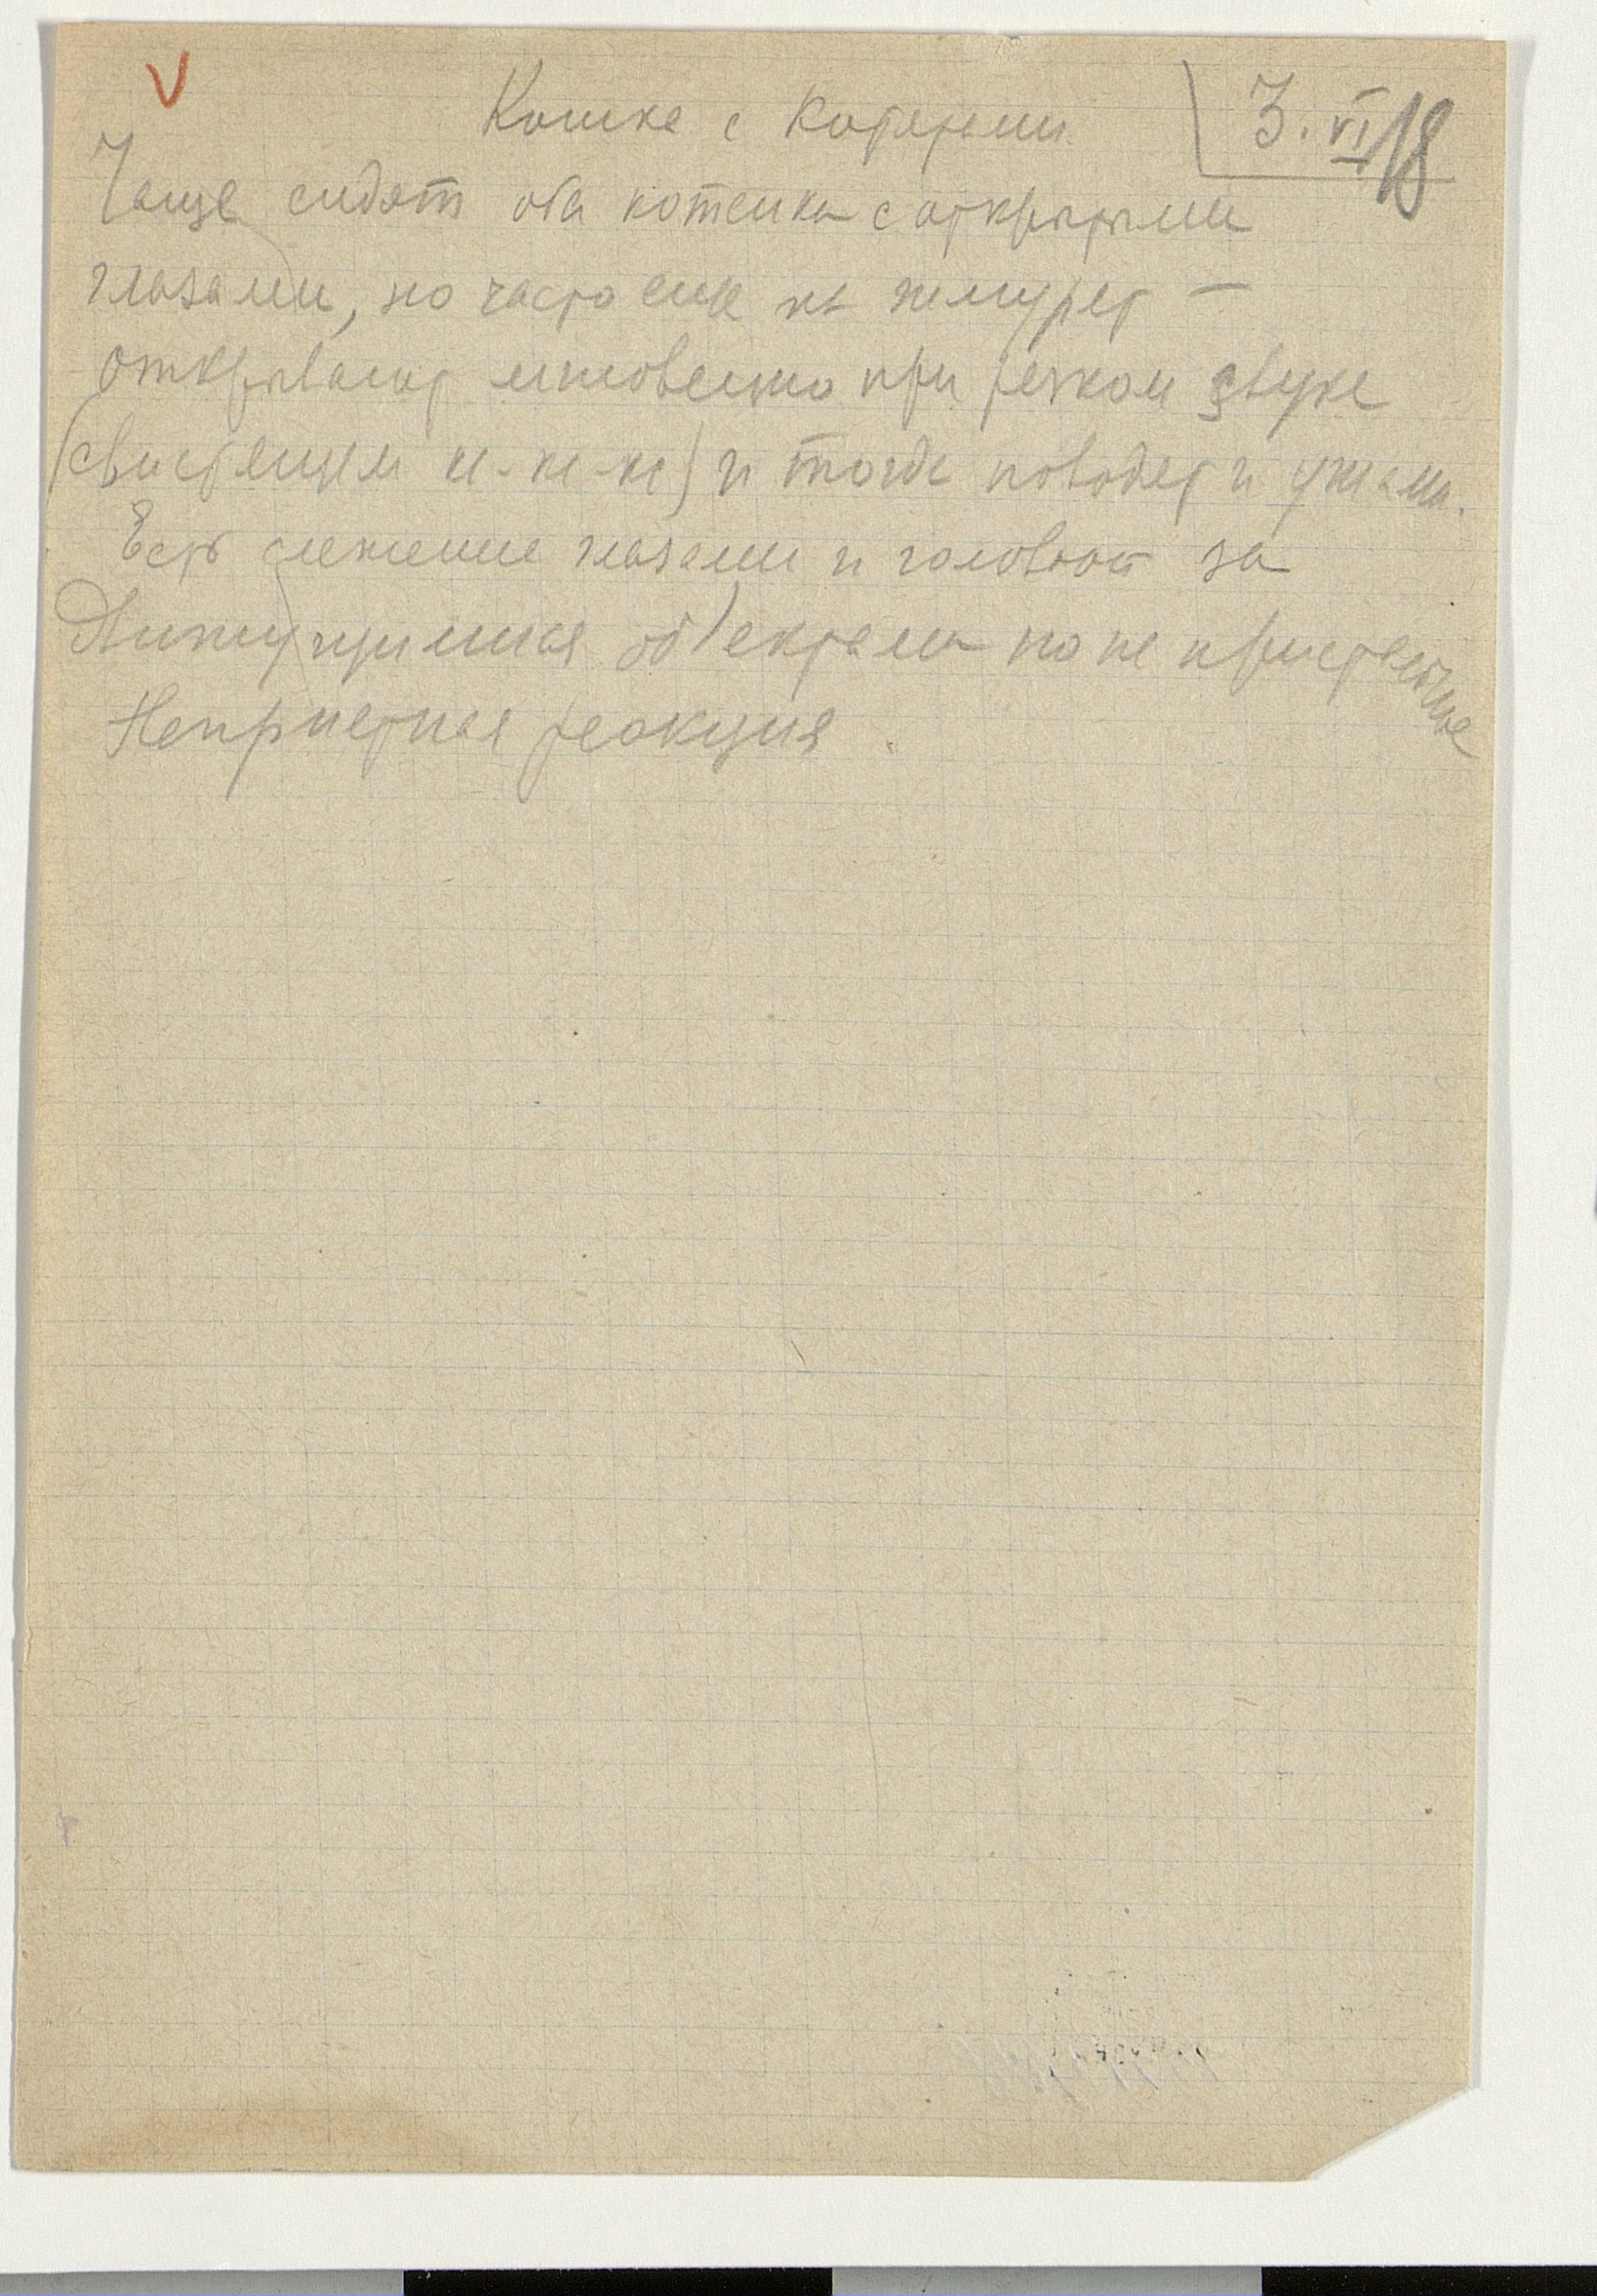 V
Кошка с котятами
3.VI 18
Чаще сидят оба котенка с открытыми
глазами, но часто еще их жмурят —
открывают мгновенно при резком звуке
(свистящем кс-кс-кс) и тогда поводят и ушами.
Есть слежение глазами и головой за
движущимися об'ектами но не пристальное
Неприятная реакция